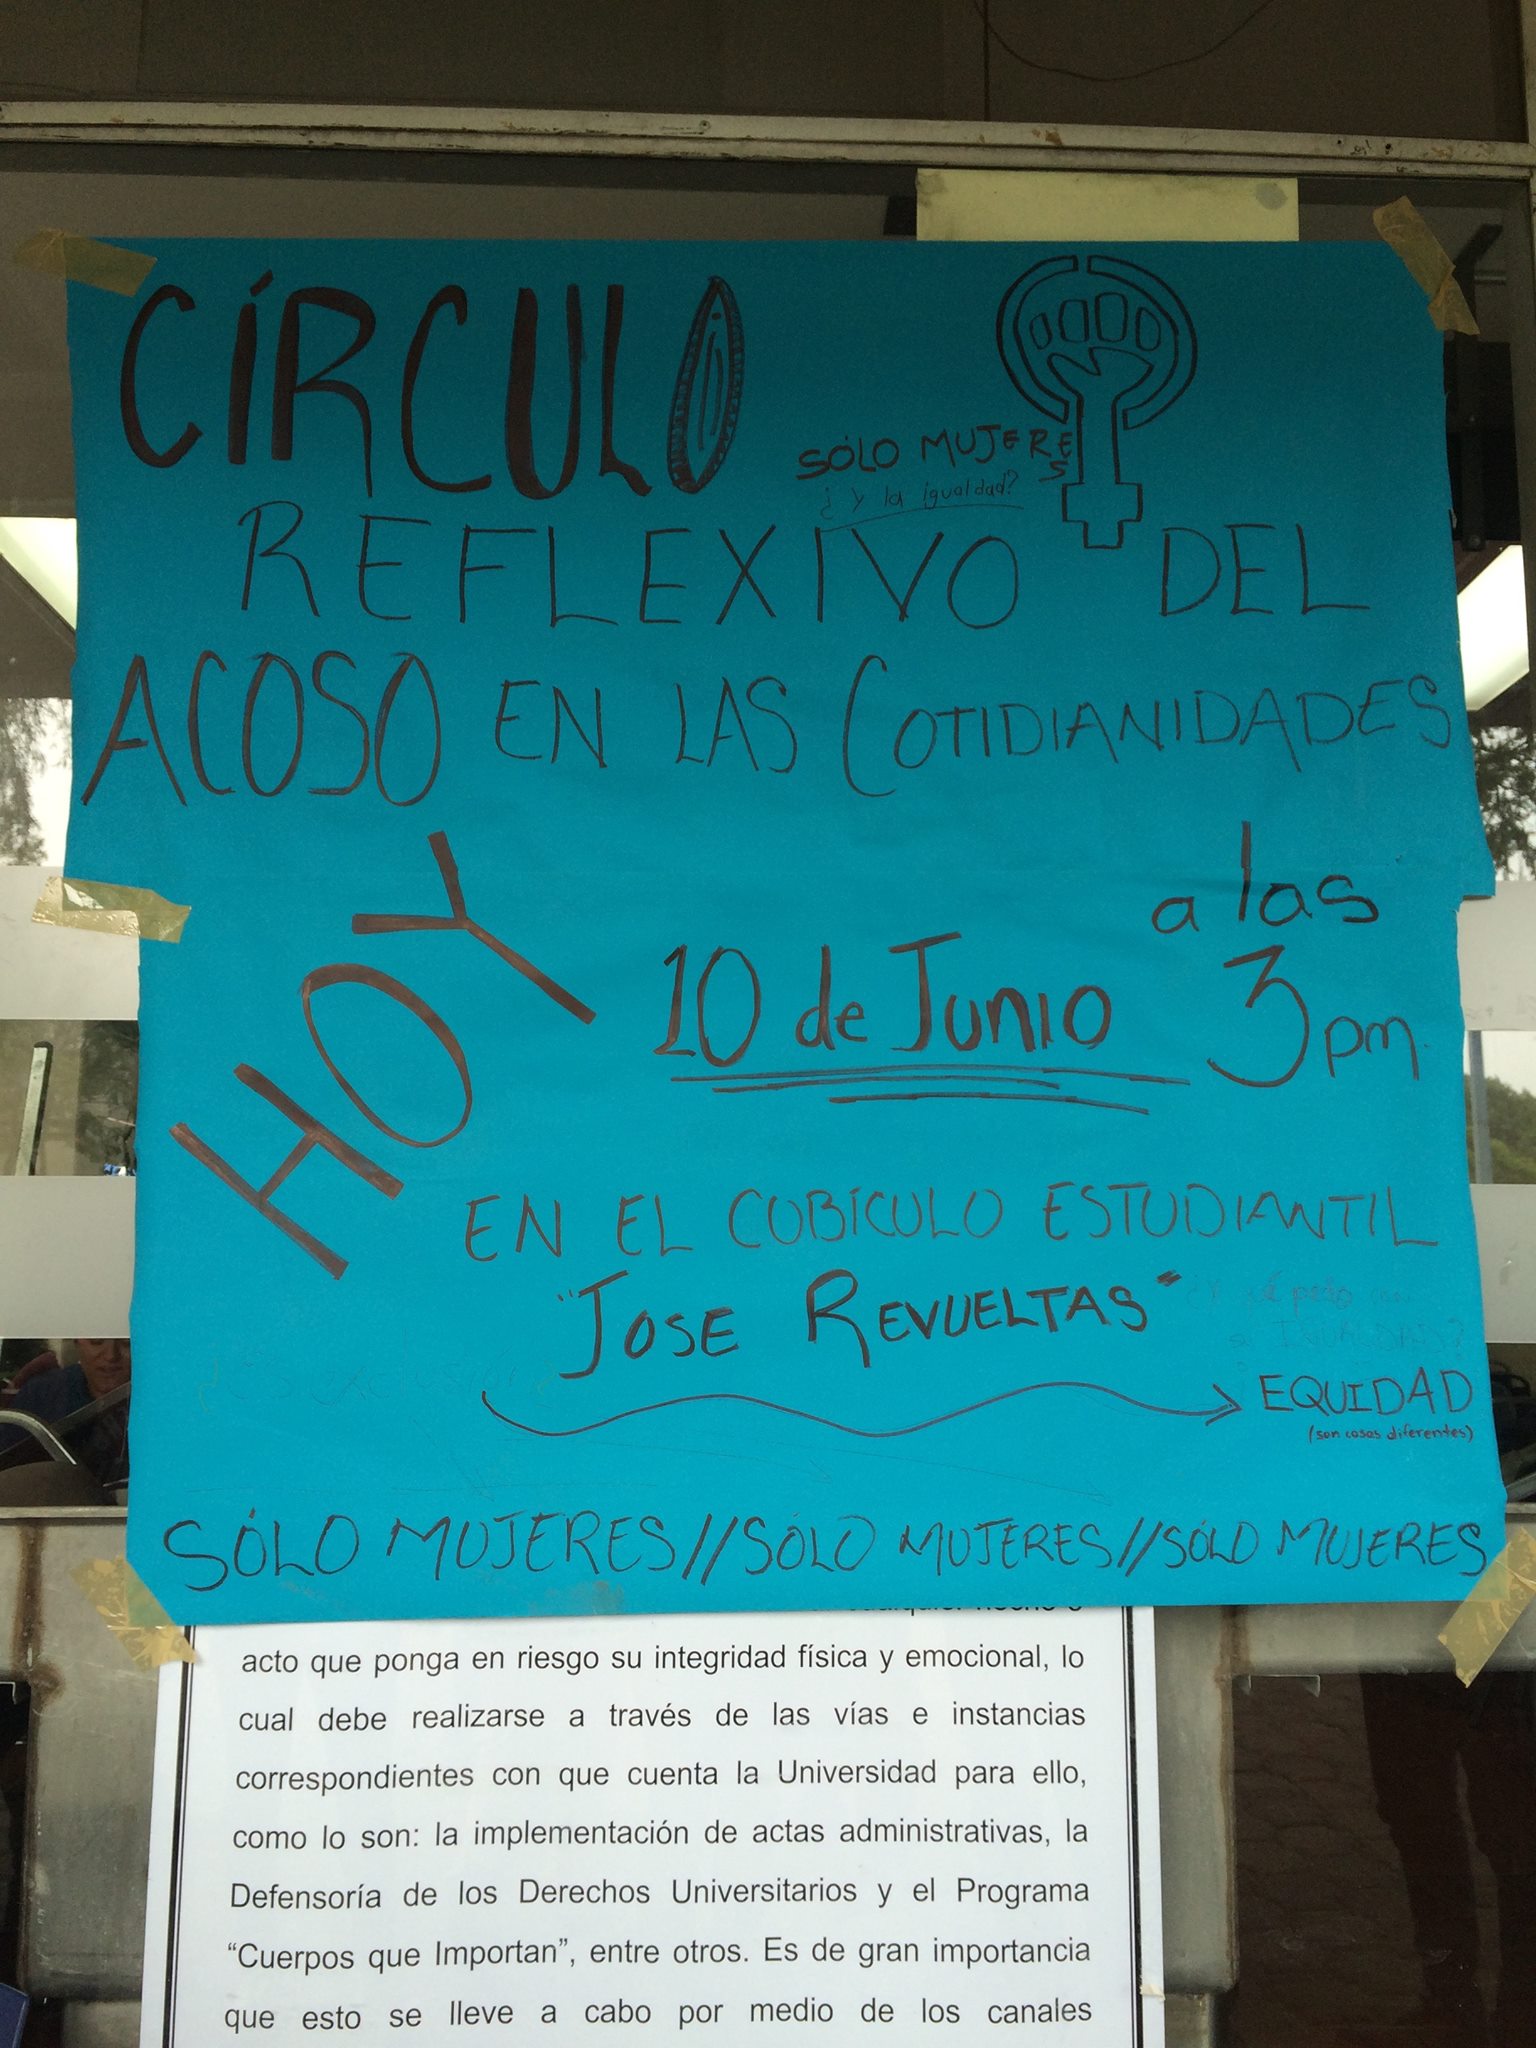 CÍRCULO
SÓLO MUJERES
¿Y la igualdad?
REFLEXIVO DEL
ACOSO EN LAS COTIDIANIDADES
HOY
10 de Junio
a las
3 pm.
EN EL CUBÍCULO ESTUDIANTIL
"JOSE REVUELTAS"
¿Es exclusión?
IGUALDAD?
EQUIDAD
(son cosas diferentes)
SÓLO MUJERES//SÓLO MUJERES//SÓLO MUJERES
acto que ponga en riesgo su integridad física y emocional, lo
cual debe realizarse a través de las vías e instancias
correspondientes con que cuenta la Universidad para ello,
como lo son: la implementación de actas administrativas, la
Defensoría de los Derechos Universitarios y el Programa
“Cuerpos que Importan”, entre otros. Es de gran importancia
que esto se lleve a cabo por medio de los canales